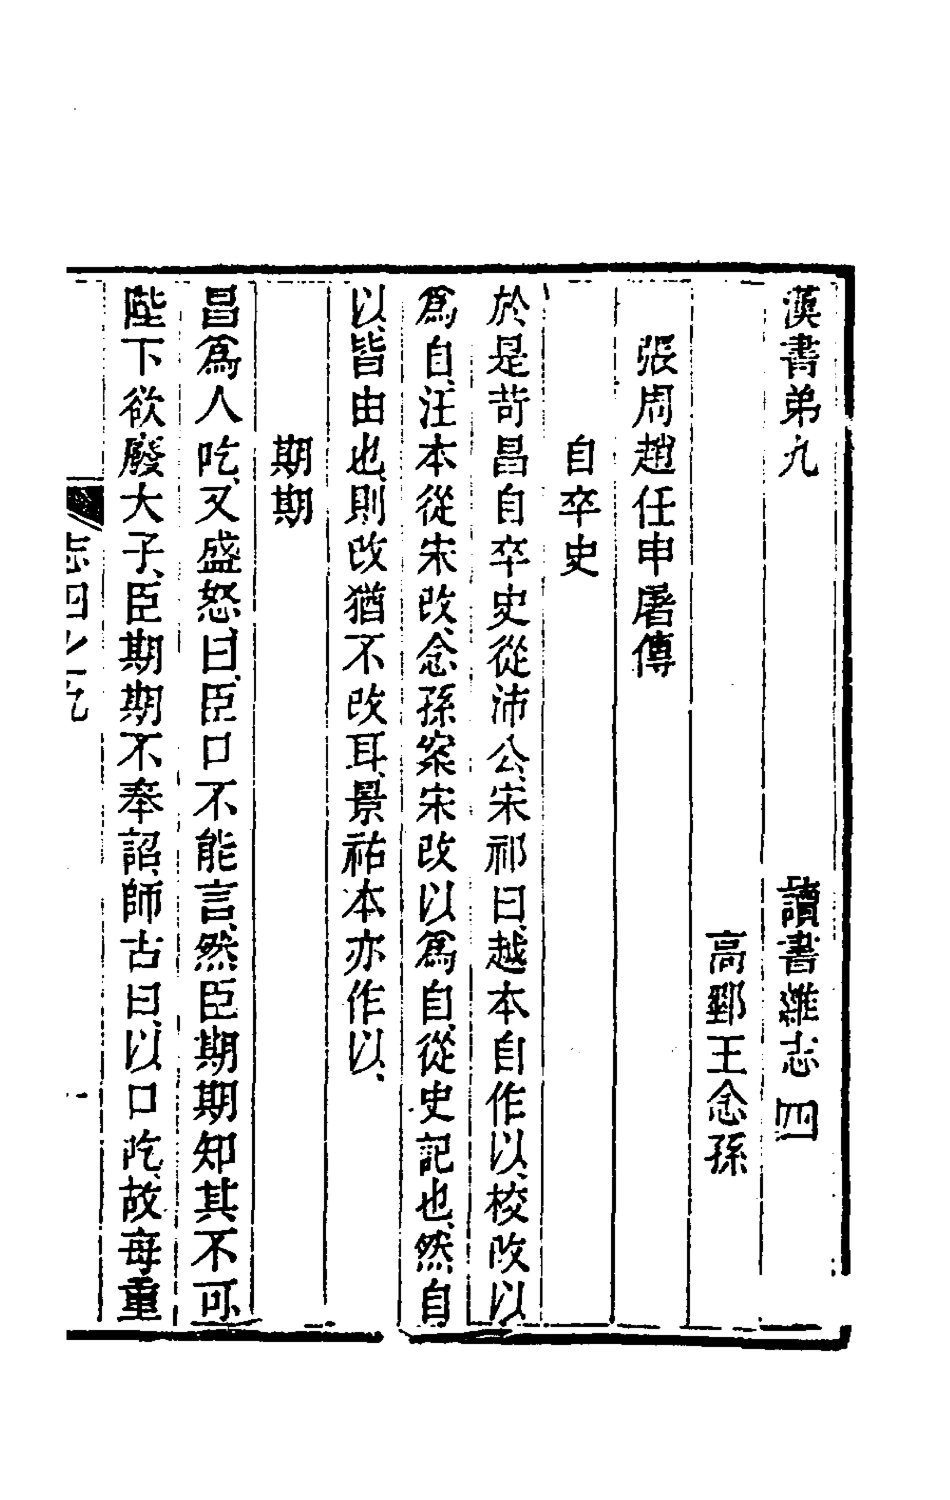 漢書弟九　讀書雜志四
高郵王念孫
張周趙任申屠傳
自卒史
於是苛昌自卒史從沛公、宋祁曰、越本自作以、校改以
爲自、注本從宋改、念孫案宋改以爲自、從史記也、然自
以、皆由也、則改猶不改耳、景祐本亦作以、
期期
昌爲人吃、又盛怒、曰、臣口不能言、然臣期期知其不可
陛下欲廢大子、臣期期不奉詔、師古曰、以口吃、故每重
志四之九